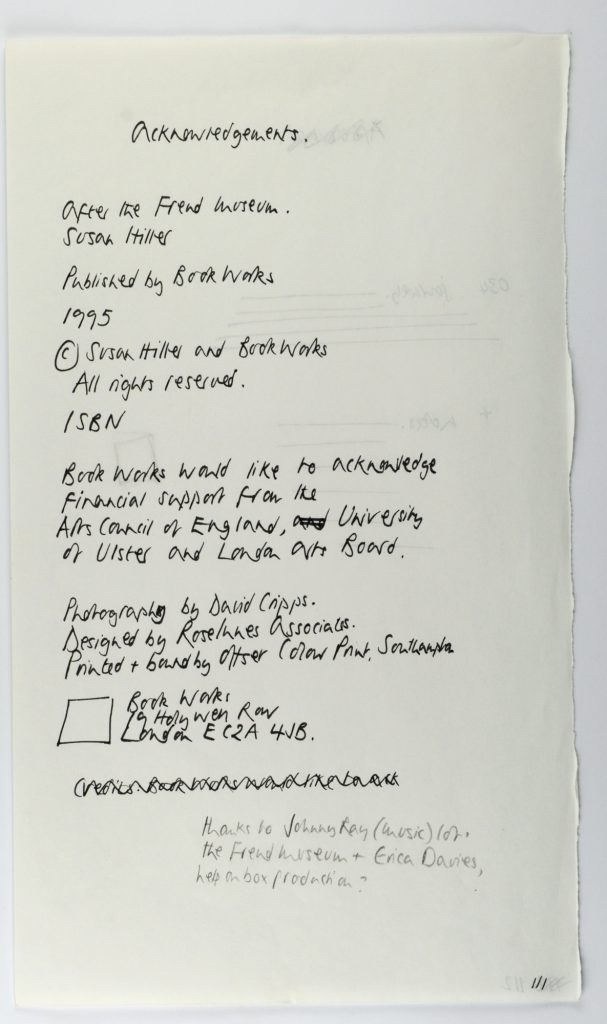 Acknowledgements.
After the Freud Museum.
Susan Hiller
Published by Book Works
1995
© Susan Hiller and Book Works
All rights reserved.
ISBN
Book Works would like to acknowledge
financial support from the
Arts Council of England, and University
of Ulster and London Arts Board.
Photography by David Cripps.
Designed by Rose Innes Associates.
Printed + bound by Offset Colour Print, Southampton
Book Works
19 Holywell Row
London EC2A 4JB.
Credits: Book Works would like to
thanks to Johnny Ray (music)
the Freud Museum + Erica Davies,
help on box production?
111